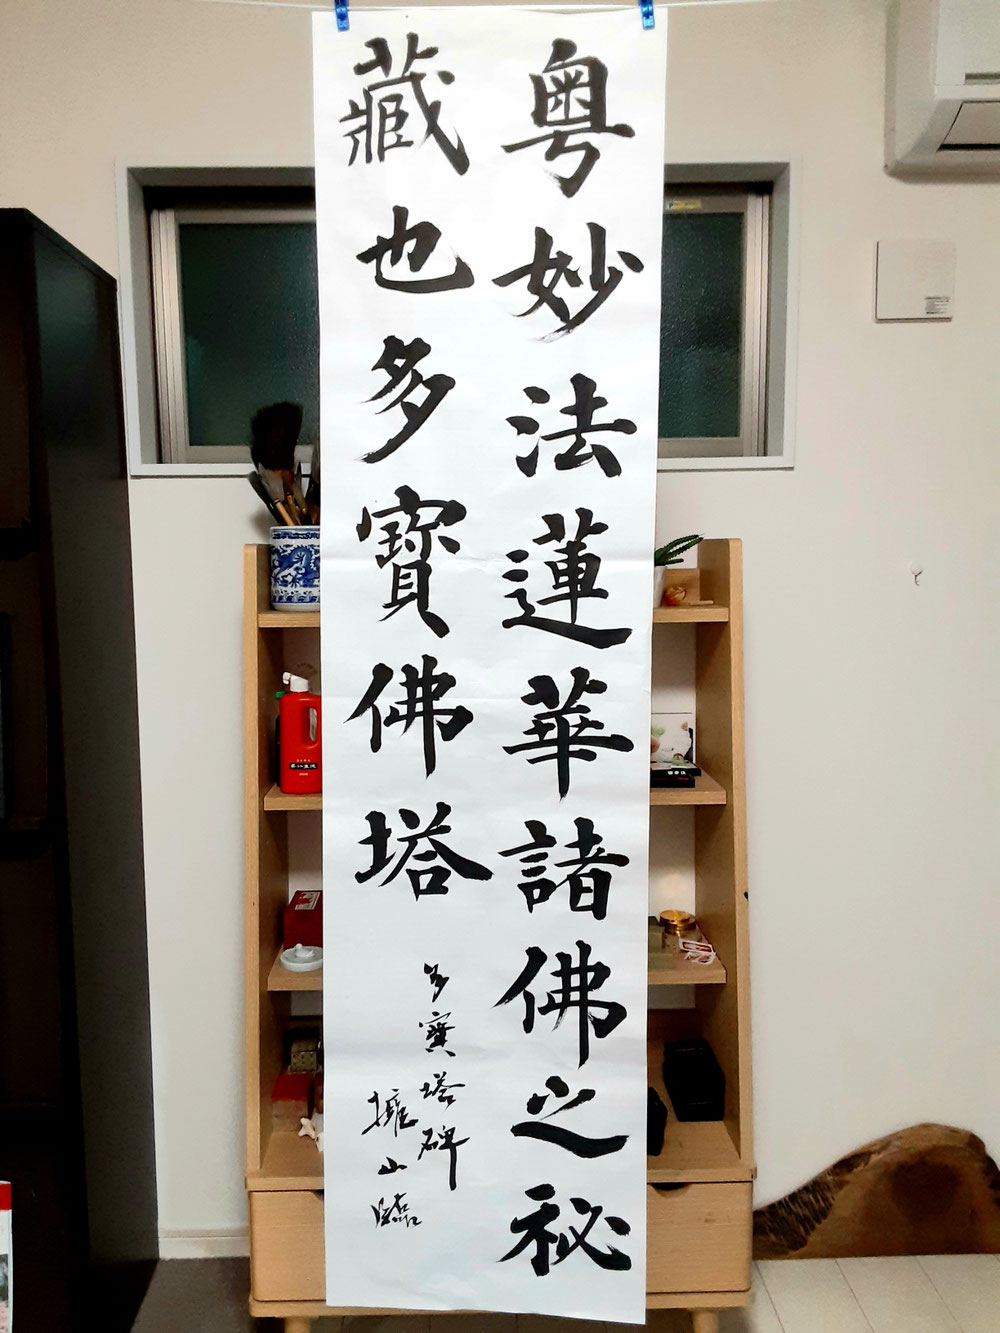 粤妙法蓮華諸佛之秘
藏也多寶佛塔
多寶塔碑
擁山臨